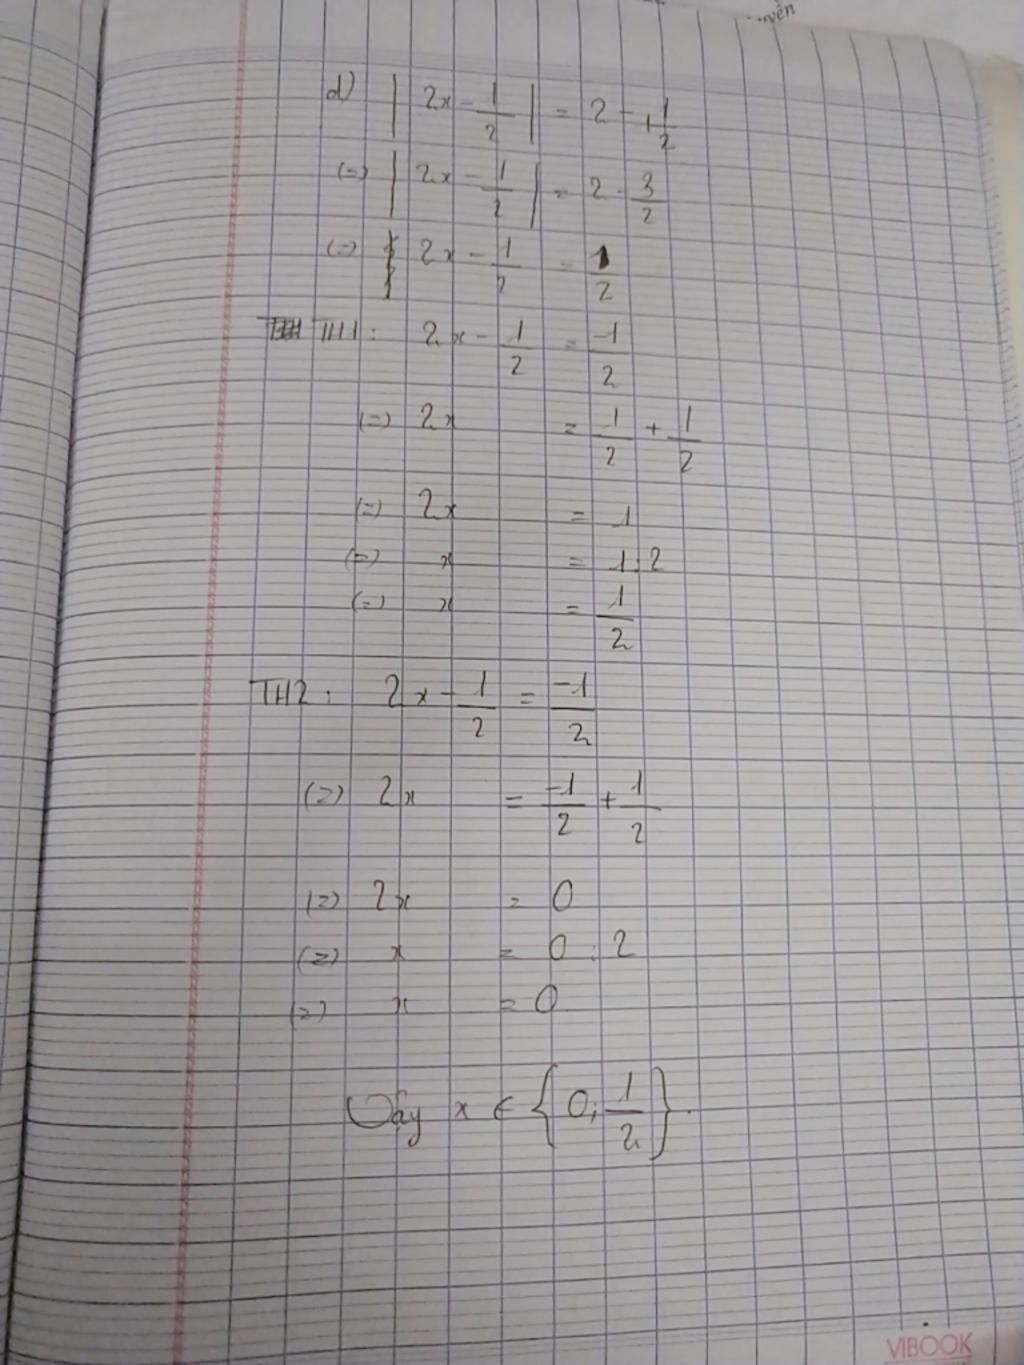 uyên
d) | 2x - 1/2 | = 2 - 1 1/2
(=) | 2x - 1/2 | = 2 - 3/2
(=) 2x - 1/2 = 1/2
TH1: 2x - 1/2 = 1/2
(=) 2x = 1/2 + 1/2
(=) 2x = 1
(=) x = 1:2
(=) x = 1/2
TH2: 2x - 1/2 = -1/2
(=) 2x = -1/2 + 1/2
(=) 2x = 0
(=) x = 0 : 2
(=) x = 0
Vậy x ∈ {0; 1/2}.
VIBOOK